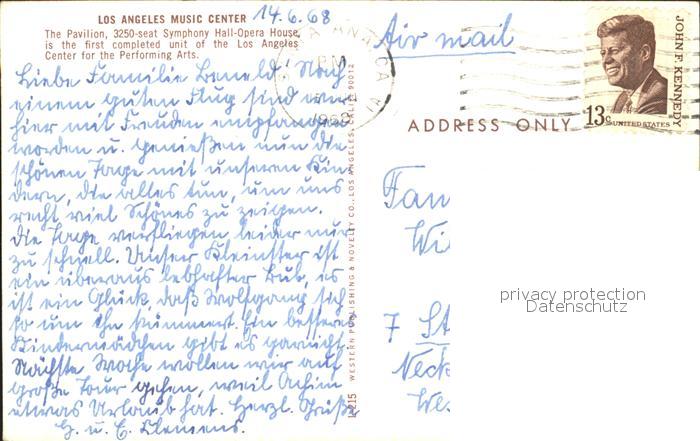 LOS ANGELES MUSIC CENTER 14.6.68
The Pavilion, 3250-seat Symphony Hall-Opera House,
is the first completed unit of the Los Angeles
Center for the Performing Arts.
Liebe Familie Nach
einem guten Flug sind wir
hier mit Freuden empfangen
worden u. genießen nun die
schönen Tage mit unseren Kin-
dern, die alles tun, um uns
recht viel Schönes zu zeigen.
Die Tage verfliegen leider nur
zu schnell. Unser Kleinster ist
ein überaus lebhafter Bub, es
ist ein Glück, daß Wolfgang sich
so um ihn kümmert. Ein besseres
Kindermädchen gibt es gar nicht.
Nächste Woche wollen wir auf
große Tour gehen, weil Achim
etwas Urlaub hat. Herzl. Grüße
H. u. E. Clemens.
WESTERN PUBLISHING & NOVELTY CO., LOS ANGELES, CALIF. 90012
L-215
SANTA ANA CA
PM
1968
Air mail
JOHN F. KENNEDY
13c UNITED STATES
ADDRESS ONLY
Fam
Wi
7 St
Neck
We
privacy protection
Datenschutz